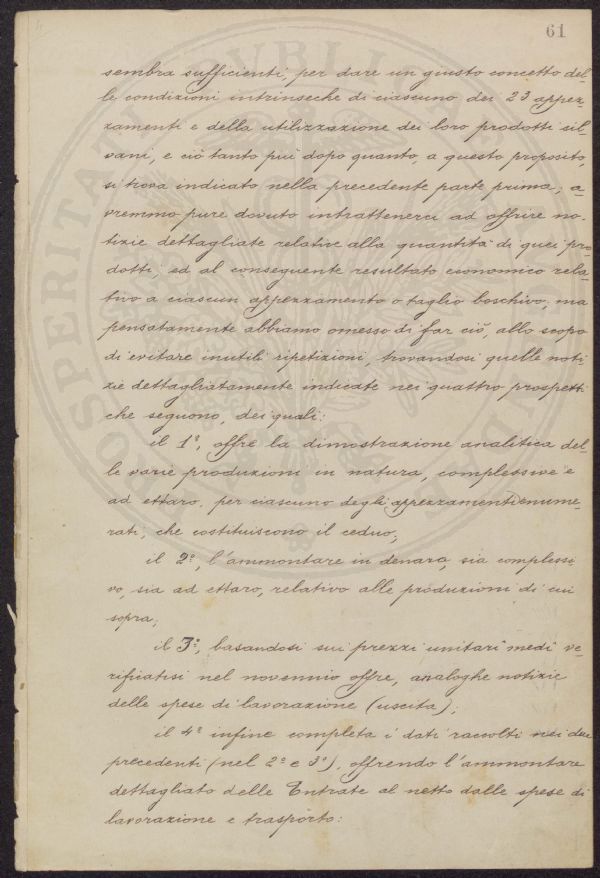 61
sembra sufficienti, per dare un giusto concetto del-
le condizioni intrinseche di ciascuno dei 23 appez-
zamenti e della utilizzazione dei loro prodotti sil-
vani, e ciò tanto più dopo quanto, a questo proposito,
si trova indicato nella precedente parte prima; a-
vremmo pure dovuto intrattenerci ad offrire no-
tizie dettagliate relative alla quantità di quei pro-
dotti, ed al conseguente resultato economico rela-
tivo a ciascun appezzamento o taglio boschivo, ma
pensatamente abbiamo omesso di far ciò, allo scopo
di evitare inutili ripetizioni, trovandosi quelle noti-
zie dettagliatamente indicate nei quattro prospetti
che seguono, dei quali:
il 1°, offre la dimostrazione analitica del-
le varie produzioni in natura, complessive e
ad ettaro, per ciascuno degli appezzamenti enume-
rati, che costituiscono il ceduo;
il 2°, l'ammontare in denaro, sia complessi
vo, sia ad ettaro, relativo alle produzioni di cui
sopra;
il 3°, basandosi sui prezzi unitari medi ve-
rificatisi nel novennio offre, analoghe notizie
delle spese di lavorazione (uscita);
il 4° infine completa i dati raccolti nei due
precedenti (nel 2° e 3°), offrendo l'ammontare
dettagliato delle Entrate al netto dalle spese di
lavorazione e trasporto: